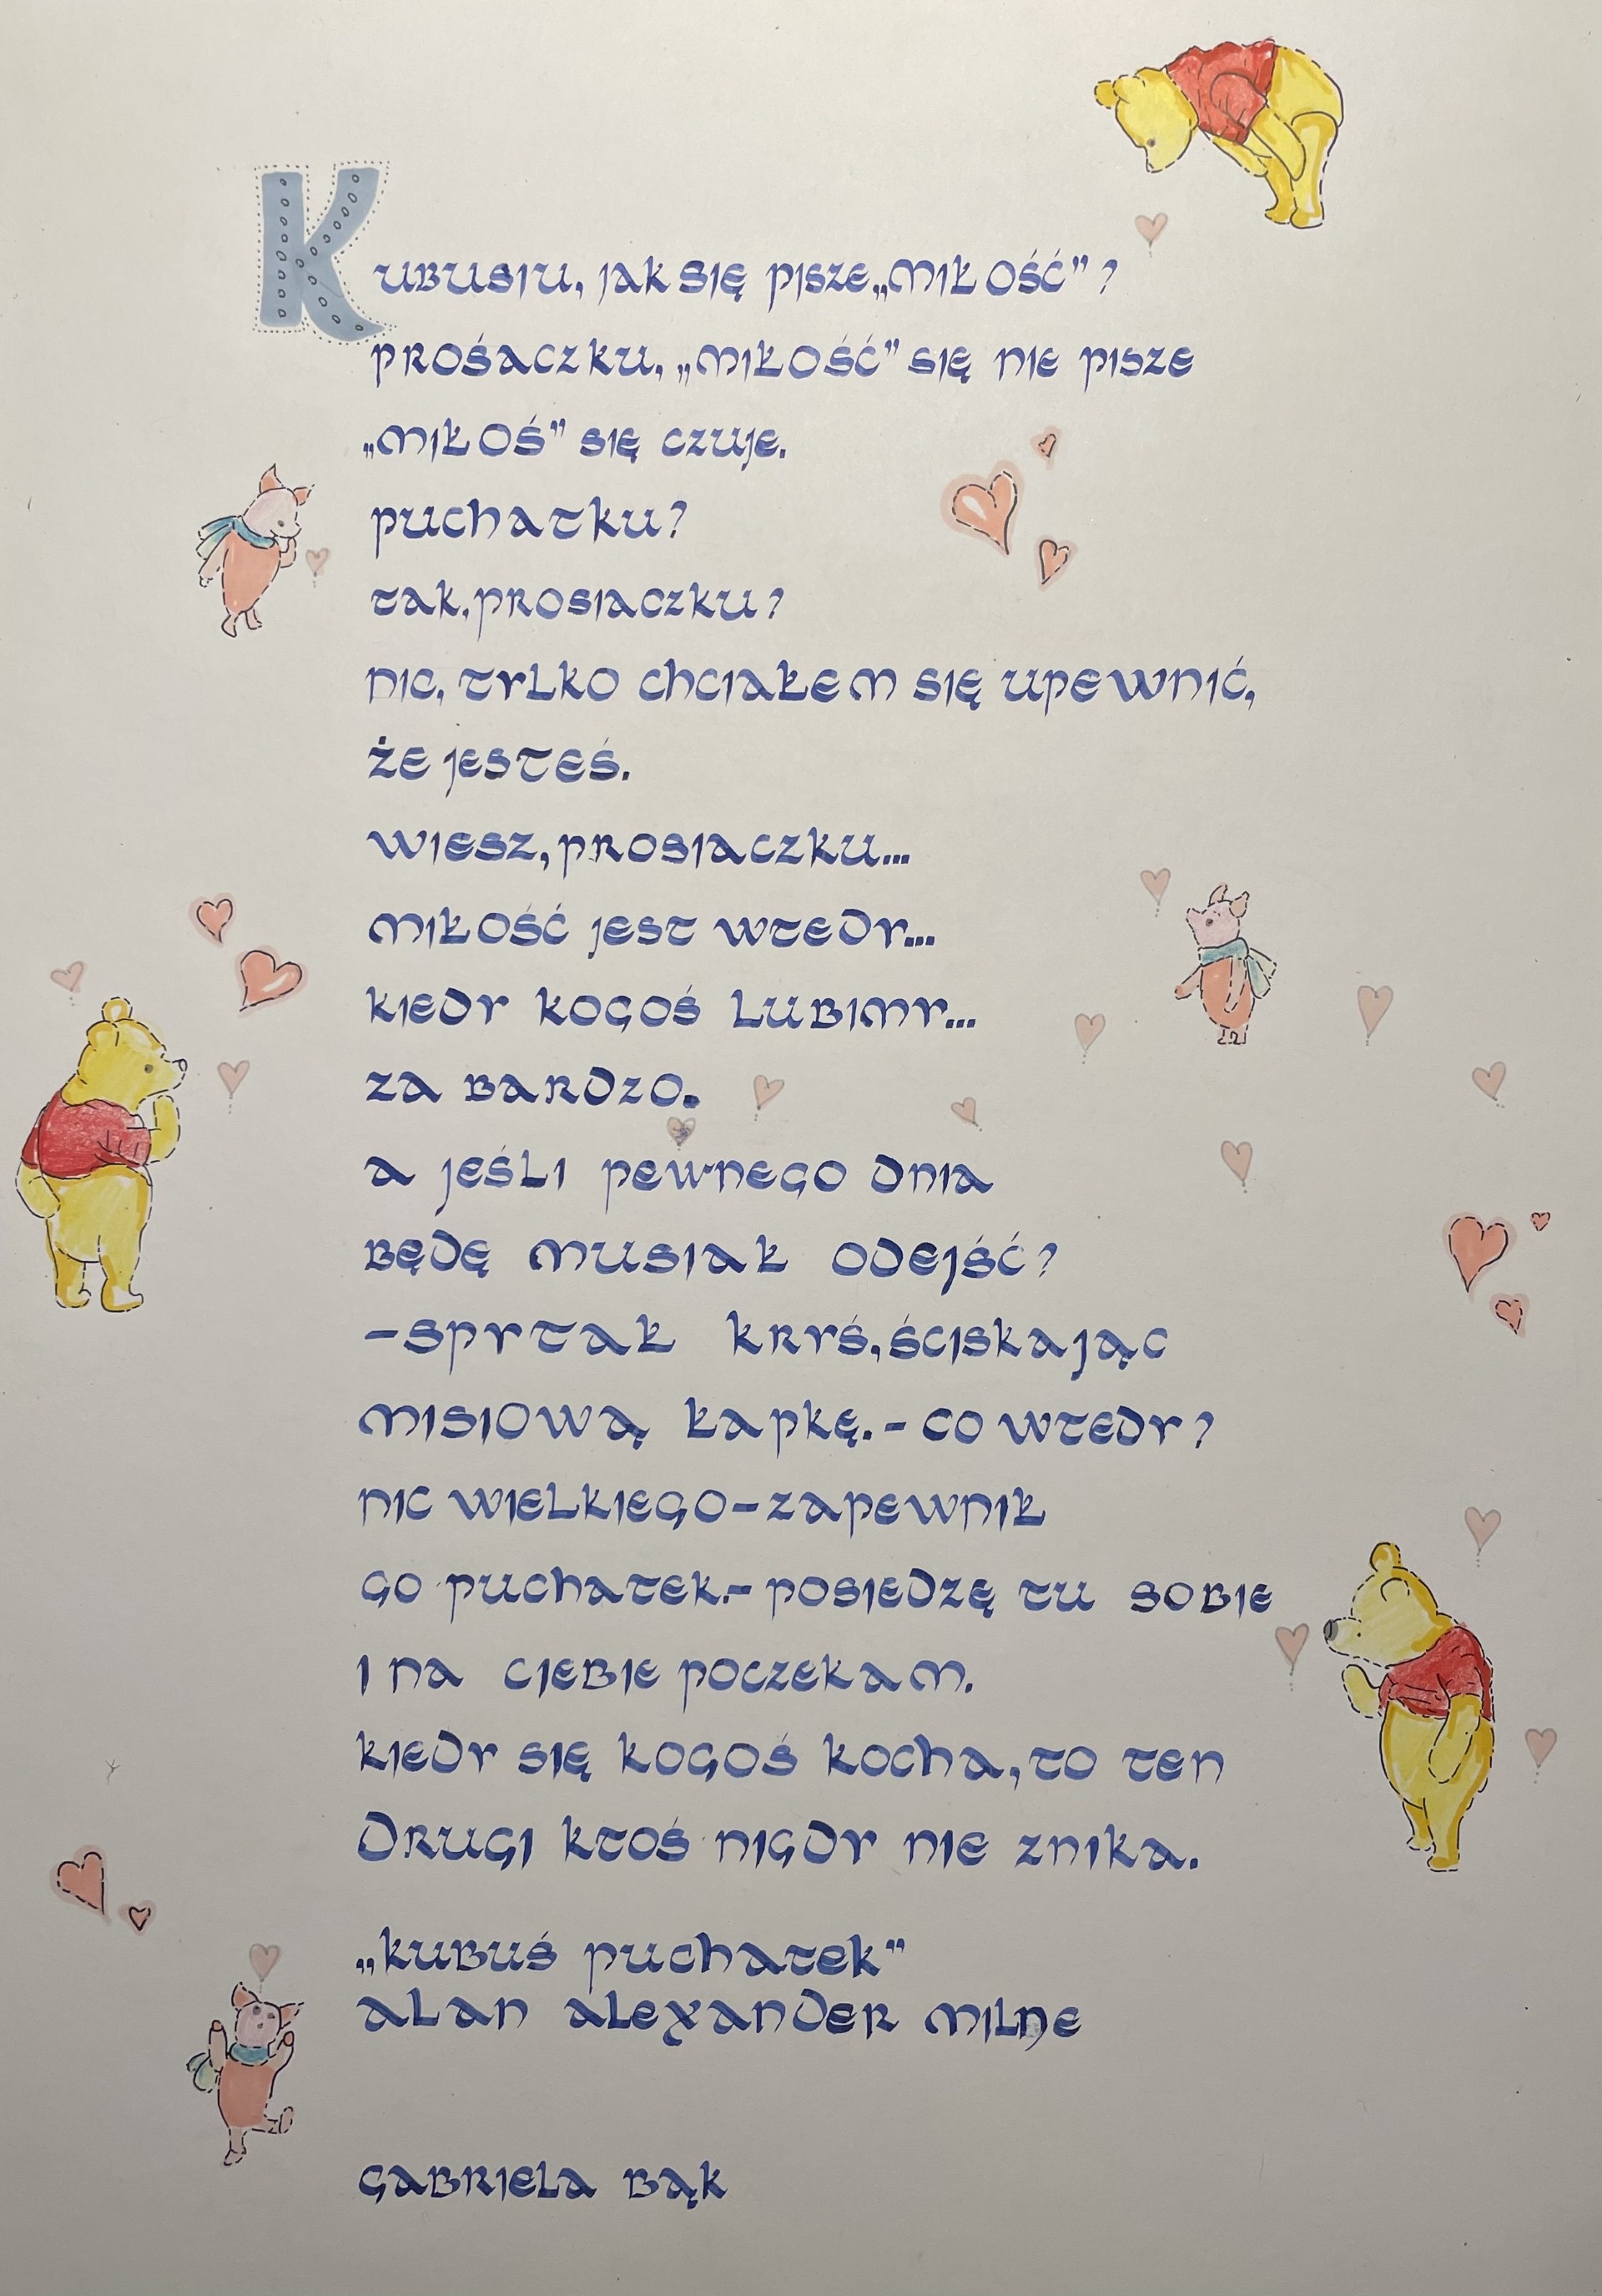 Kubusiu, jak się pisze „miłość"?
prośaczku, „miłość" się nie pisze
„miłoś" się czuje.
puchatku?
tak, prosiaczku?
nic, tylko chciałem się upewnić,
że jesteś.
wiesz, prosiaczku...
miłość jest wtedy...
kiedy kogoś lubimy...
za bardzo.
a jeśli pewnego dnia
będę musiał odejść?
-spytał kryś, ściskając
misiową łapkę.- co wtedy?
nic wielkiego-zapewnił
go puchatek.- posiedzę tu sobie
i na ciebie poczekam.
kiedy się kogoś kocha, to ten
drugi ktoś nigdy nie znika.
„kubuś puchatek"
alan alexander milne
gabriela bąk